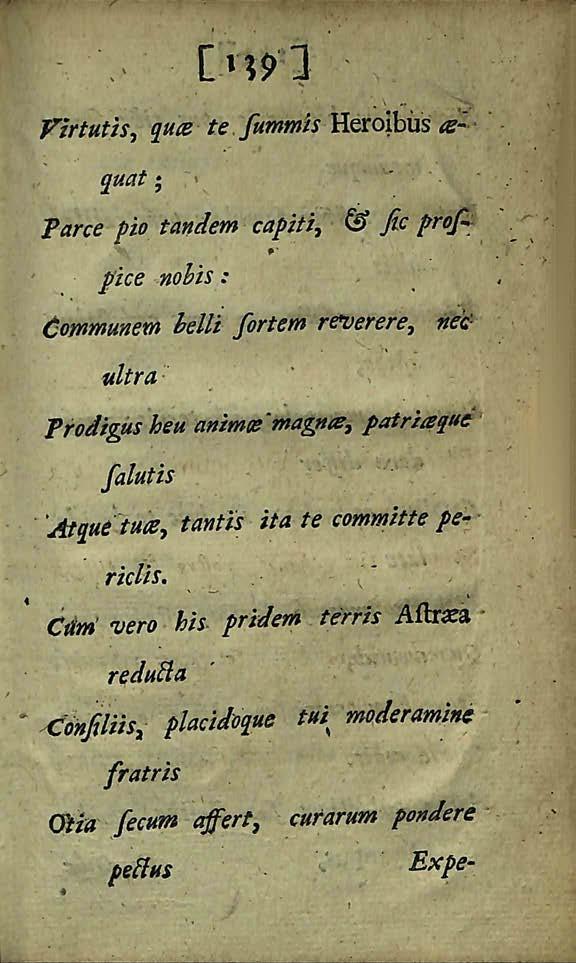 [ 139 ]
Virtutis, quæ te ſummis Heroibus æ-
quat ;
Parce pio tandem capiti, & ſic proſ-
pice nobis :
Communem belli ſortem reverere, nec
ultra
Prodigus heu animæ magnæ, patriæque
ſalutis
Atque tuæ, tantis ita te committe pe-
riclis.
Cùm vero his pridem terris Aſtræa
reducta
Conſiliis, placidoque tui moderamine
fratris
Otia ſecum affert, curarum pondere
pectus
Expe-